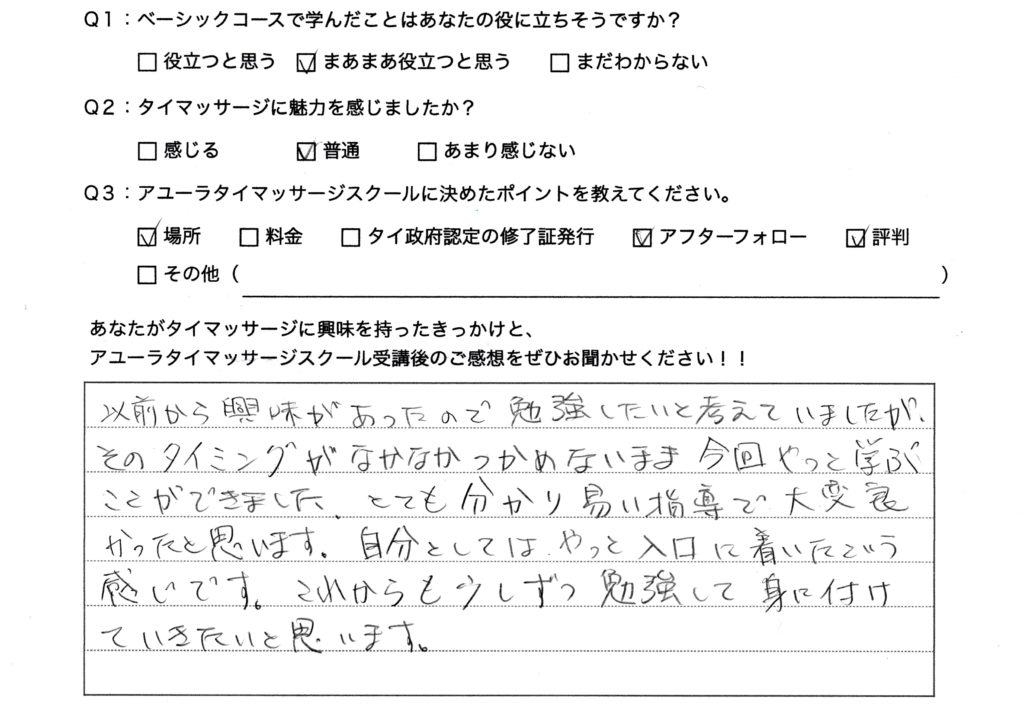 Q1：ベーシックコースで学んだことはあなたの役に立ちそうですか？
□役立つと思う ☑まあまあ役立つと思う □まだわからない
Q2：タイマッサージに魅力を感じましたか？
□感じる ☑普通 □あまり感じない
Q3：アユーラタイマッサージスクールに決めたポイントを教えてください。
☑場所 □料金 □タイ政府認定の修了証発行 ☑アフターフォロー ☑評判
□その他（ ）
あなたがタイマッサージに興味を持ったきっかけと、
アユーラタイマッサージスクール受講後のご感想をぜひお聞かせください！！
以前から興味があったので勉強したいと考えていましたが、
そのタイミングがなかなかつかめないまま今回やっと学ぶ
ことができました。とても分かり易い指導で大変良
かったと思います。自分としては、やっと入口に着いたという
感じです。これからも少しずつ勉強して身に付け
ていきたいと思います。